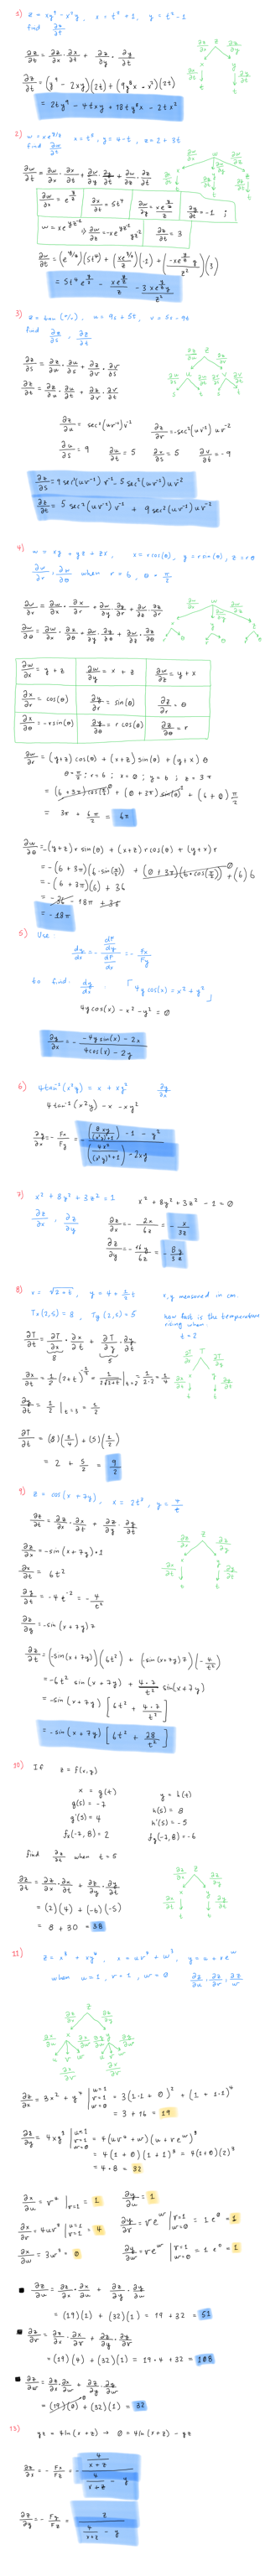 1) z = xy⁹ - x²y, x = t² + 1, y = t² - 1
find ∂z/∂t
∂z/∂t = ∂z/∂x · ∂x/∂t + ∂z/∂y · ∂y/∂t
∂z/∂t = (y⁹ - 2xy)(2t) + (9y⁸x - x²)(2t)
= 2ty⁹ - 4txy + 18ty⁸x - 2tx²
2) w = xe^(y/z) x = t⁵, y = 4 - t, z = 2 + 3t
find ∂w/∂t
∂w/∂t = ∂w/∂x · ∂x/∂t + ∂w/∂y · ∂y/∂t + ∂w/∂z · ∂z/∂t
∂w/∂x = e^(y/z) ∂x/∂t = 5t⁴ ∂w/∂y = xe^(y/z)/z ∂y/∂t = -1 ;
w = xe^(yz⁻¹) ⇒ ∂w/∂z = -xe^(yz⁻¹) yz⁻² ∂z/∂t = 3
∂w/∂t = (e^(y/z))(5t⁴) + (xe^(y/z)/z)(-1) + (-xe^(y/z)y/z²)(3)
= 5t⁴e^(y/z) - xe^(y/z)/z - 3xe^(y/z)y/z²
3) z = tan(u/v), u = 9s + 5t, v = 5s - 9t
find ∂z/∂s , ∂z/∂t
∂z/∂s = ∂z/∂u · ∂u/∂s + ∂z/∂v · ∂v/∂s
∂z/∂t = ∂z/∂u · ∂u/∂t + ∂z/∂v · ∂v/∂t
∂z/∂u = sec²(uv⁻¹)v⁻¹ ∂z/∂v = -sec²(uv⁻¹)uv⁻²
∂u/∂s = 9 ∂u/∂t = 5 ∂v/∂s = 5 ∂v/∂t = -9
∂z/∂s = 9 sec²(uv⁻¹)v⁻¹ - 5 sec²(uv⁻¹)uv⁻²
∂z/∂t = 5 sec²(uv⁻¹)v⁻¹ + 9 sec²(uv⁻¹)uv⁻²
4) w = xy + yz + zx, x = r cos(θ), y = r sin(θ), z = rθ
∂w/∂r , ∂w/∂θ when r = 6, θ = π/2
∂w/∂r = ∂w/∂x · ∂x/∂r + ∂w/∂y · ∂y/∂r + ∂w/∂z · ∂z/∂r
∂w/∂θ = ∂w/∂x · ∂x/∂θ + ∂w/∂y · ∂y/∂θ + ∂w/∂z · ∂z/∂θ
∂w/∂x = y + z ∂w/∂y = x + z ∂w/∂z = y + x
∂x/∂r = cos(θ) ∂y/∂r = sin(θ) ∂z/∂r = θ
∂x/∂θ = -r sin(θ) ∂y/∂θ = r cos(θ) ∂z/∂θ = r
∂w/∂r = (y+z) cos(θ) + (x+z) sin(θ) + (y+x) θ
θ = π/2 ; r = 6 ; x = 0 ; y = 6 ; z = 3π
= (6 + 3π) cos(π/2) + (0 + 3π) sin(π/2) + (6 + 0) π/2
= 3π + 6π/2 = 6π
∂w/∂θ = -(y+z) r sin(θ) + (x+z) r cos(θ) + (y+x) r
= -(6 + 3π)(6·sin(π/2)) + (0 + 3π)(6·cos(π/2)) + (6) 6
= -(6 + 3π)(6) + 36
= -36 - 18π + 36
= -18π
5) Use
dy/dx = - (dF/dx)/(dF/dy) = - Fx/Fy
to find dy/dx . 「 4y cos(x) = x² + y² 」
4y cos(x) - x² - y² = 0
∂y/∂x = - (-4y sin(x) - 2x)/(4cos(x) - 2y)
6) 4tan⁻¹(x²y) = x + xy² ∂y/∂x
4tan⁻¹(x²y) - x - xy²
∂y/∂x = - Fx/Fy = - ((8xy/((x²y)²+1)) - 1 - y²)/((4x²/((x²y)²+1)) - 2xy)
7) x² + 8y² + 3z² = 1 x² + 8y² + 3z² - 1 = 0
∂z/∂x , ∂z/∂y ∂z/∂x = - 2x/6z = - x/3z
∂z/∂y = - 16y/6z = - 8y/3z
8) x = √(2+t), y = 4 + ½t x, y measured in cm.
Tx(2,5) = 8, Ty(2,5) = 5 how fast is the temperature
rising when
t = 2
∂T/∂t = ∂T/∂x · ∂x/∂t + ∂T/∂y · ∂y/∂t
8 5
∂x/∂t = ½(2+t)^(-½) = 1/(2√(2+t)) |t=2 = 1/(2·2) = 1/4
∂y/∂t = ½ |t=2 = ½
∂T/∂t = (8)(1/4) + (5)(1/2)
= 2 + 5/2 = 9/2
9) z = cos(x + 7y), x = 2t³, y = 4/t
∂z/∂t = ∂z/∂x · ∂x/∂t + ∂z/∂y · ∂y/∂t
∂z/∂x = -sin(x + 7y)·1
∂x/∂t = 6t²
∂y/∂t = -4t⁻² = - 4/t²
∂z/∂y = -sin(x + 7y)7
∂z/∂t = (-sin(x+7y))(6t²) + (-sin(x+7y)7)(-4/t²)
= -6t² sin(x + 7y) + (4·7/t²) sin(x+7y)
= -sin(x + 7y) [6t² + 4·7/t²]
= -sin(x + 7y) [6t² + 28/t²]
10) If z = f(x,y)
x = g(t) y = h(t)
g(5) = -7 h(5) = 8
g'(5) = 4 h'(5) = -5
fx(-7,8) = 2 fy(-7,8) = -6
find ∂z/∂t when t = 5
∂z/∂t = ∂z/∂x · ∂x/∂t + ∂z/∂y · ∂y/∂t
= (2)(4) + (-6)(-5)
= 8 + 30 = 38
11) z = x³ + xy⁴, x = uv⁴ + w³, y = u + ve^w
when u = 1, v = 1, w = 0 ∂z/∂u , ∂z/∂v , ∂z/∂w
∂z/∂x = 3x² + y⁴ | u=1 v=1 w=0 = 3(1·1 + 0)² + (1 + 1·1)⁴
= 3 + 16 = 19
∂z/∂y = 4xy³ | u=1 v=1 w=0 = 4(uv⁴ + w)(u + ve^w)³
= 4(1 + 0)(1 + 1)³ = 4(1+0)(2)³
= 4·8 = 32
∂x/∂u = v⁴ |v=1 = 1 ∂y/∂u = 1
∂x/∂v = 4uv³ | u=1 v=1 = 4 ∂y/∂v = ve^w | v=1 w=0 = 1e⁰ = 1
∂x/∂w = 3w² = 0 ∂y/∂w = ve^w | v=1 w=0 = 1e⁰ = 1
∂z/∂u = ∂z/∂x · ∂x/∂u + ∂z/∂y · ∂y/∂u
= (19)(1) + (32)(1) = 19 + 32 = 51
∂z/∂v = ∂z/∂x · ∂x/∂v + ∂z/∂y · ∂y/∂v
= (19)(4) + (32)(1) = 19·4 + 32 = 108
∂z/∂w = ∂z/∂x · ∂x/∂w + ∂z/∂y · ∂y/∂w
= (19)(0) + (32)(1) = 32
13) yz = 4ln(x+z) → 0 = 4ln(x+z) - yz
∂z/∂x = - Fx/Fz = - (4/(x+z))/(4/(x+z) - y)
∂z/∂y = - Fy/Fz = z/(4/(x+z) - y)